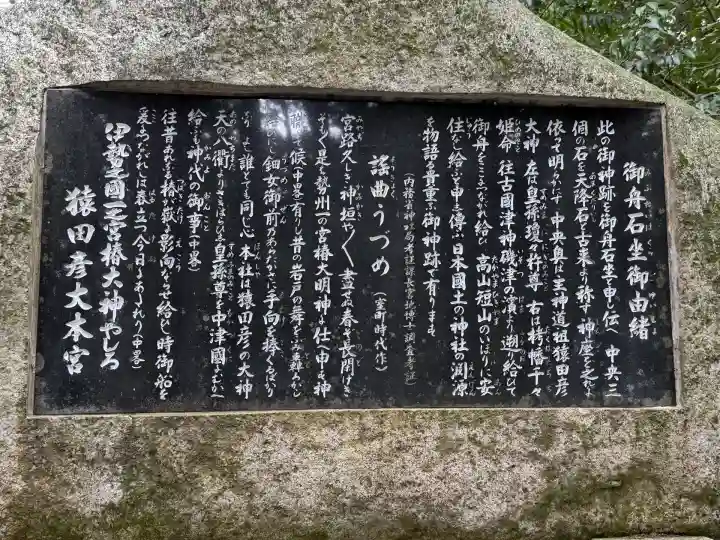 御舟石坐御由緒
此の御神跡を御舟石坐と申し伝へ中央三
個の石を天降石と古来より称す神座を之れに
依って明らかにす中央奥は主神道祖猿田彦
大神左は皇孫瓊々杵尊右は栲幡千々
姫命往古國津神磯津の濱より遡り給ひて
御舟をこゝにつながれ給ひ高山短山のいほりに安
住し給ふと申し傳ふ日本國土の神社の淵源
を物語る貴重な御神跡で有ります
(内務省神祇局考証課長宮地博士調査考証)
謡曲うづめ(室町時代作)
宮路久しき神垣や〱盡せぬ春ぞ長閑けき
そも〱是は勢州一の宮椿大明神に仕へ申す神
職にて候(中畧)有りし昔の岩戸の舞
鈿女御前のあたゝかに手向を捧ぐるはかり
誰とても同じ心本社は猿田彦の大神
天の八衢よりさきはらひ皇孫尊を中津國
給ふも神代の御事(中畧)
往昔かたじけなくも椿が嶽に影向ならせ給ひし時御船を
爰につながれしは春立つ今日に(中畧)
伊勢國一之宮椿大神やしろ
猿田彦大本宮